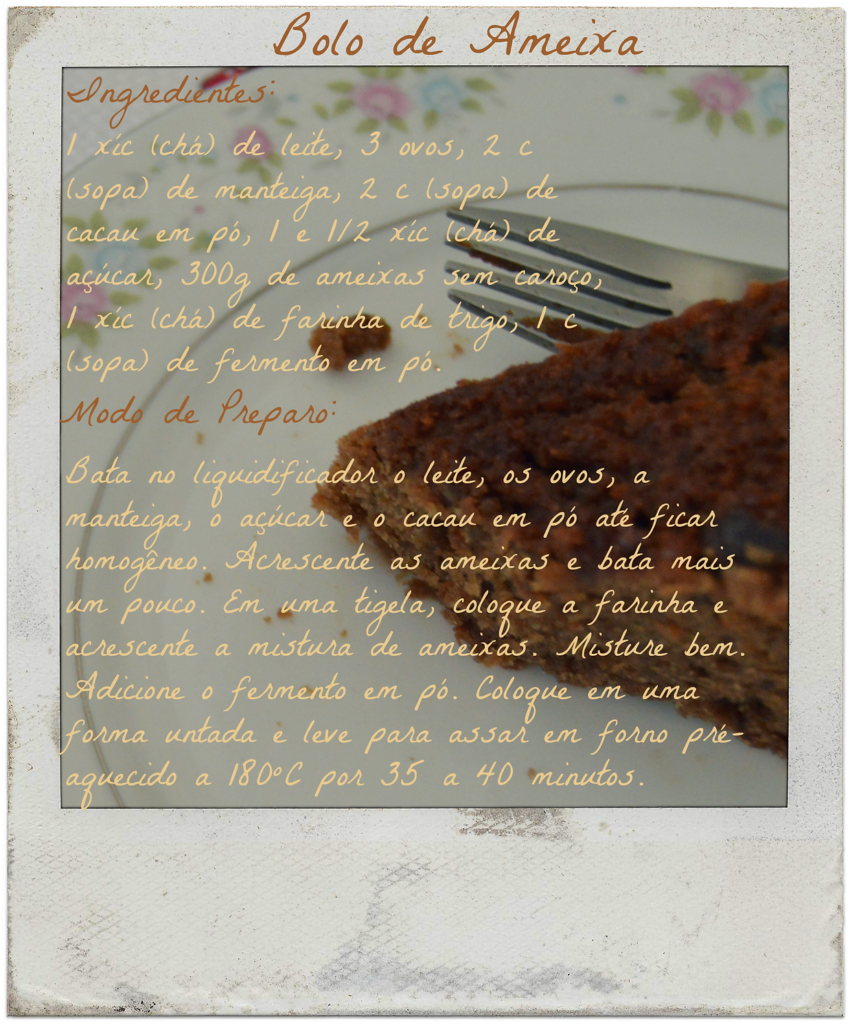 Bolo de Ameixa
Ingredientes:
1 xíc (chá) de leite, 3 ovos, 2 c
(sopa) de manteiga, 2 c (sopa) de
cacau em pó, 1 e 1/2 xíc (chá) de
açúcar, 300g de ameixas sem caroço,
1 xíc (chá) de farinha de trigo, 1 c
(sopa) de fermento em pó.
Modo de Preparo:
Bata no liquidificador o leite, os ovos, a
manteiga, o açúcar e o cacau em pó até ficar
homogêneo. Acrescente as ameixas e bata mais
um pouco. Em uma tigela, coloque a farinha e
acrescente a mistura de ameixas. Misture bem.
Adicione o fermento em pó. Coloque em uma
forma untada e leve para assar em forno pré-
aquecido a 180ºC por 35 a 40 minutos.